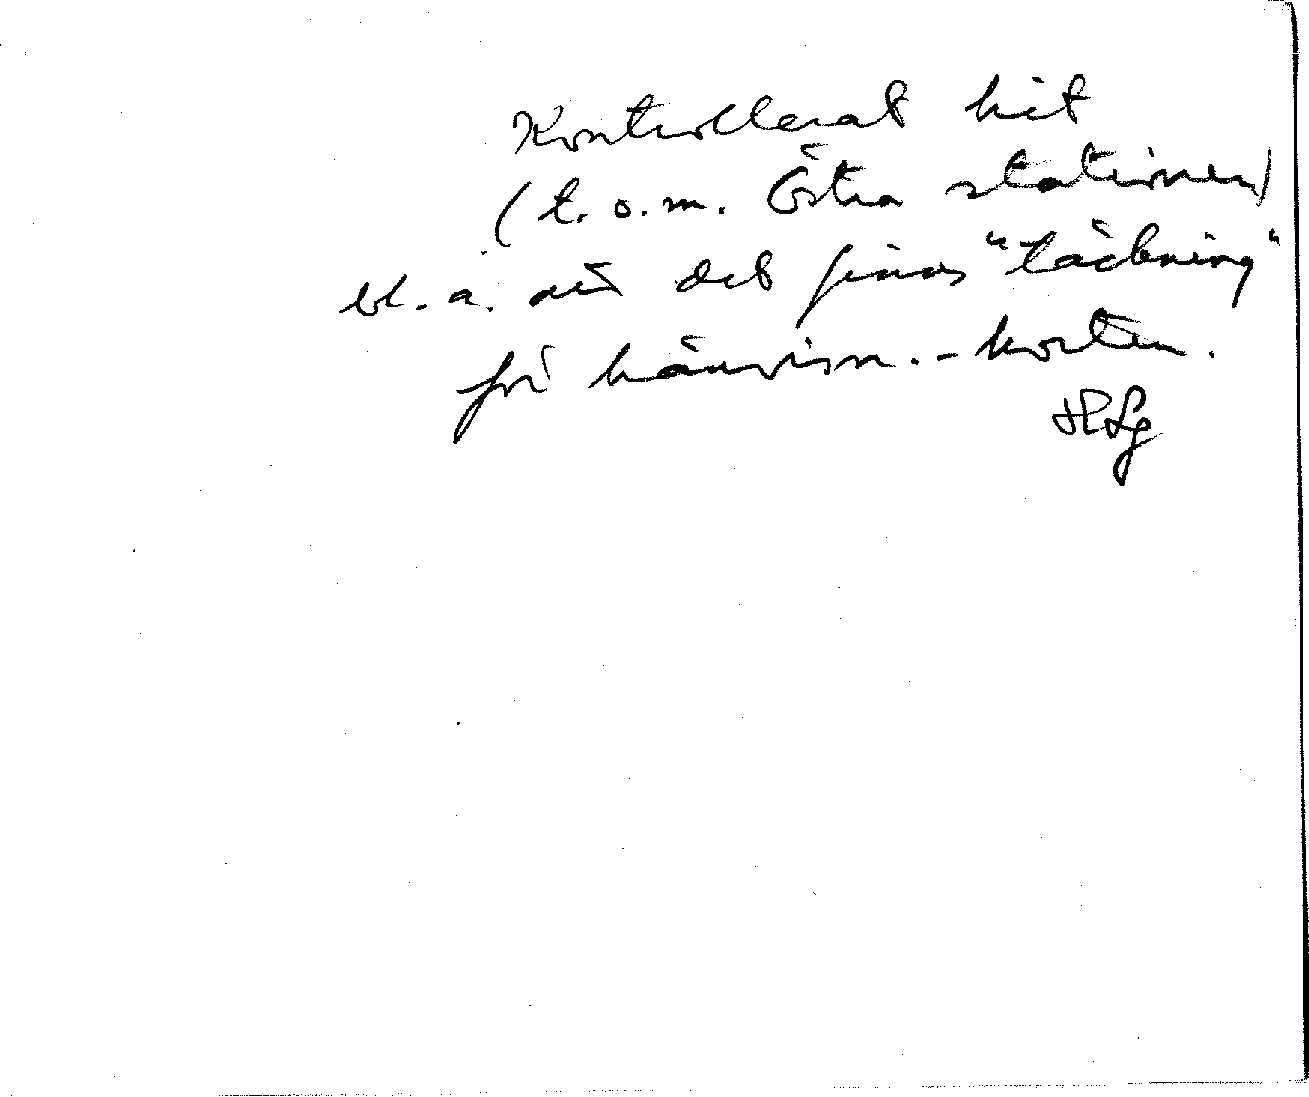 Kontrollerat hit
(t.o.m. Östra stationen)
bl.a. att det finns "täckning"
för hänvisn.-korten.
HLg